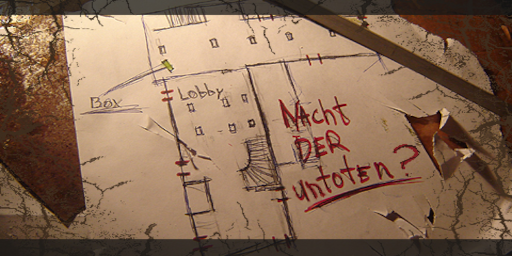 Box
Lobby
NAcht
DER
untoten?